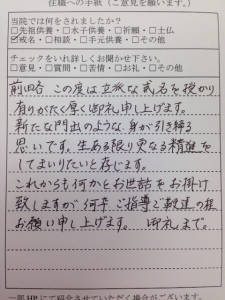 住職への手紙(ご意見を願います。)
当院では何をされましたか?
□先祖供養・□水子供養・□祈願・□土仏
☑戒名・□相談・□手元供養・□その他
チェックをいれ詳しくお聞かせ下さい。
□意見・□質問・□苦情・□お礼・□その他
前略 この度は立派な戒名を授かり
有りがたく厚く御礼申し上げます。
新たな門出のような、身が引き締る
思いです。生ある限り更なる精進を
してまいりたいと存じます。
これからも何かとお世話をお掛け
致しますが何卒ご指導ご鞭達の程
お願い申し上げます。 御礼まで。
一部HPにて紹介させていただく場合がございます。